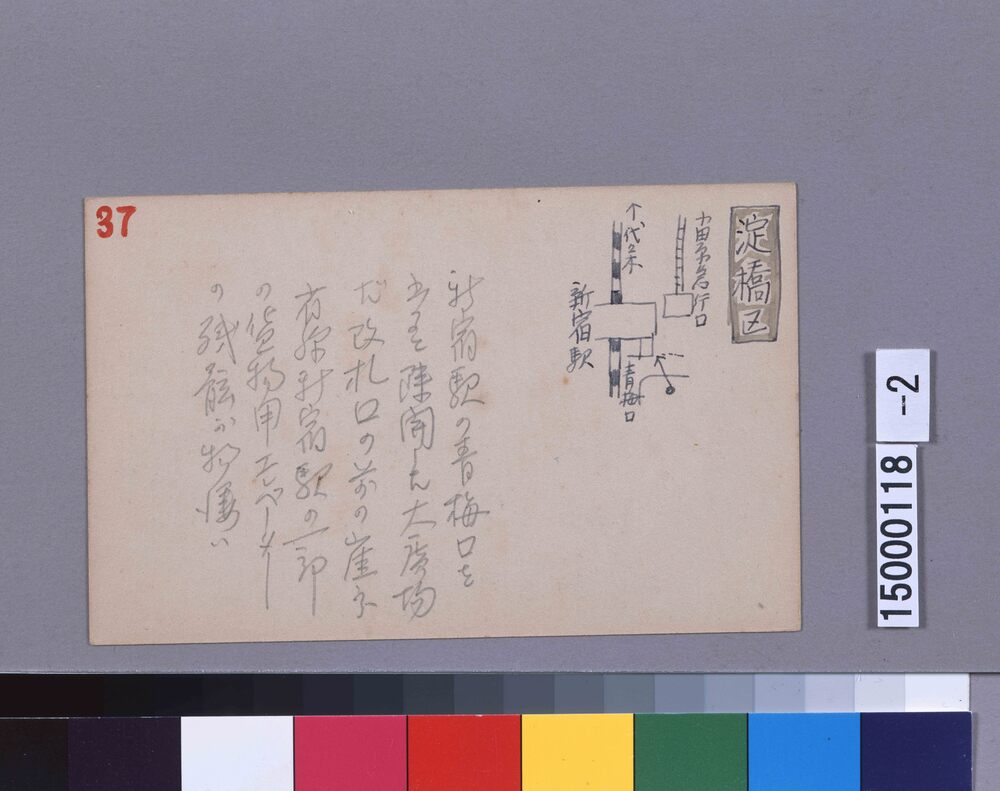 37
淀橋区
小田原急行口
↑代々木
新宿駅
青梅口
新宿駅の青梅口を
出る 疎開した大廣場
だ 改札口の前の崖下
有 新宿駅の一部
の貨物用エベーター
の残骸が物凄い
15000118
--2